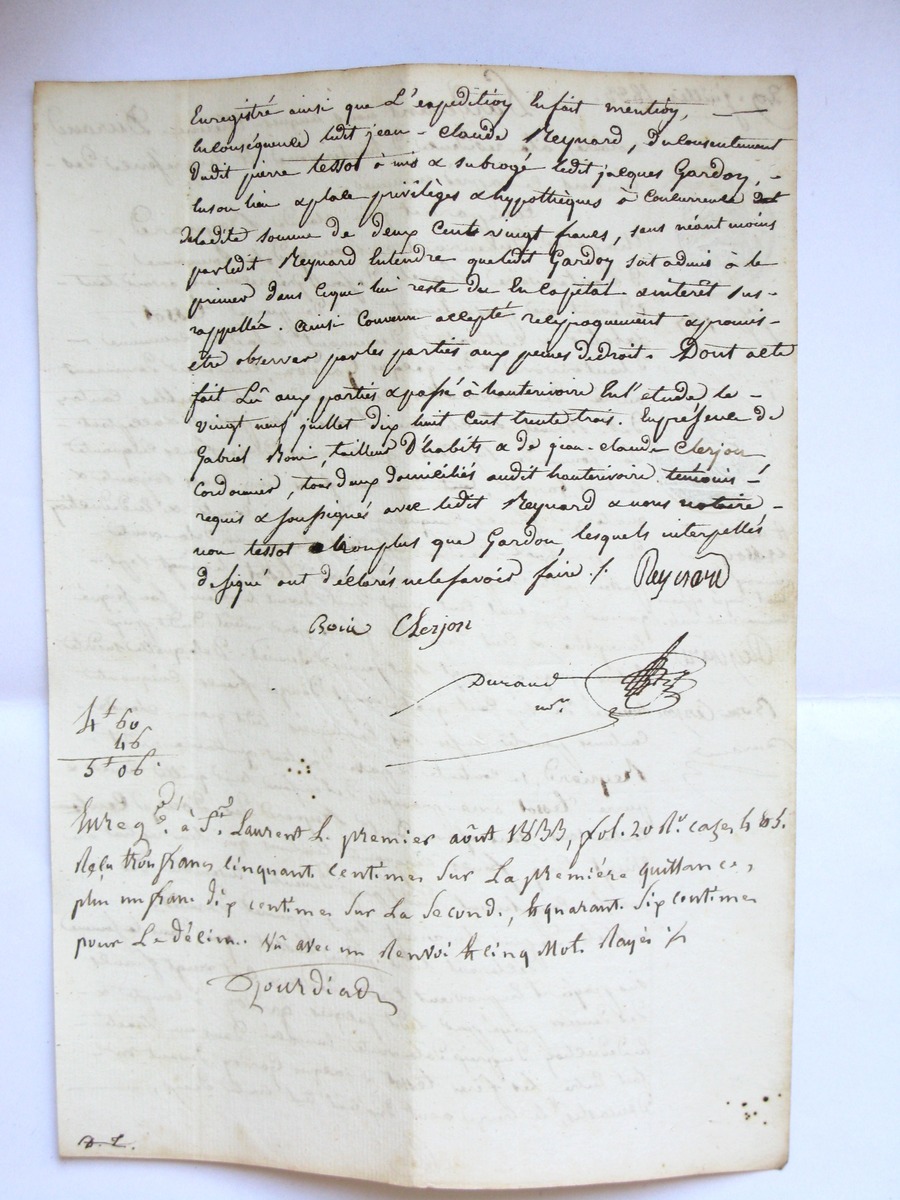 Enregistré ainsi que L'expedition En fait mention, —
En Conséquence ledit jean-Claude Reynard, du Consentement
dudit pierre tessot à mis & subrogé ledit jacques Gardon, -
En son lieu & place privilèges & hypothèques à Concurrence
de ladite somme de deux Cent vingt francs, sans néantmoins
par ledit Reynard Entendre que ledit Gardon soit admis à le
primer dans ce qui lui reste du En Capital & interêt sus-
rappellés. ainsi Convenu accepté reciproquement & promis -
être observer par les parties aux peines de droit. Dont acte
fait Lû aux parties & passé à hauterivoire En l'étude le -
vingt neuf juillet dix huit Cent trente trois. En présence de
Gabriel Boni, tailleur D'habits & de jean-claude Clerjon
Cordonnier, tous deux domiciliés audit hauterivoire temoins -
requis & soussignés avec ledit Reynard & nous notaire -
non tessot Non plus que Gardon, lesquels interpellés
de signé ont déclarés ne le savoir faire ./. Reynard
Clerjon
Durand
nre
4f 60
46
5f 06
Enregé. à St. Laurent Le premier août 1833, fol. 20 Ro. cazes 4 & 5.
Reçu trois francs cinquante centimes sur La première quittance,
plus un franc dix centimes sur La seconde, & quarante six centimes
pour Le décime. Vû avec un Renvoi & cinq Mots Rayés ./.
D. L.